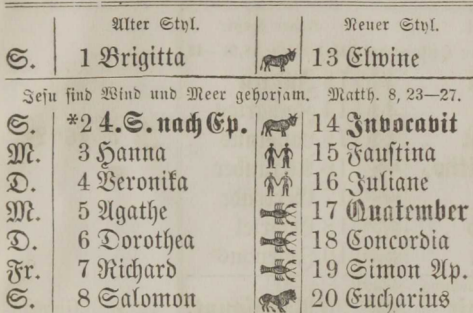 Alter Styl. Neuer Styl.
S. 1 Brigitta 13 Elwine
Jesu sind Wind und Meer gehorsam. Matth. 8, 23—27.
S. *2 4. S. nach Ep. 14 Invocavit
M. 3 Hanna 15 Faustina
D. 4 Veronika 16 Juliane
M. 5 Agathe 17 Quatember
D. 6 Dorothea 18 Concordia
Fr. 7 Richard 19 Simon Ap.
S. 8 Salomon 20 Eucharius